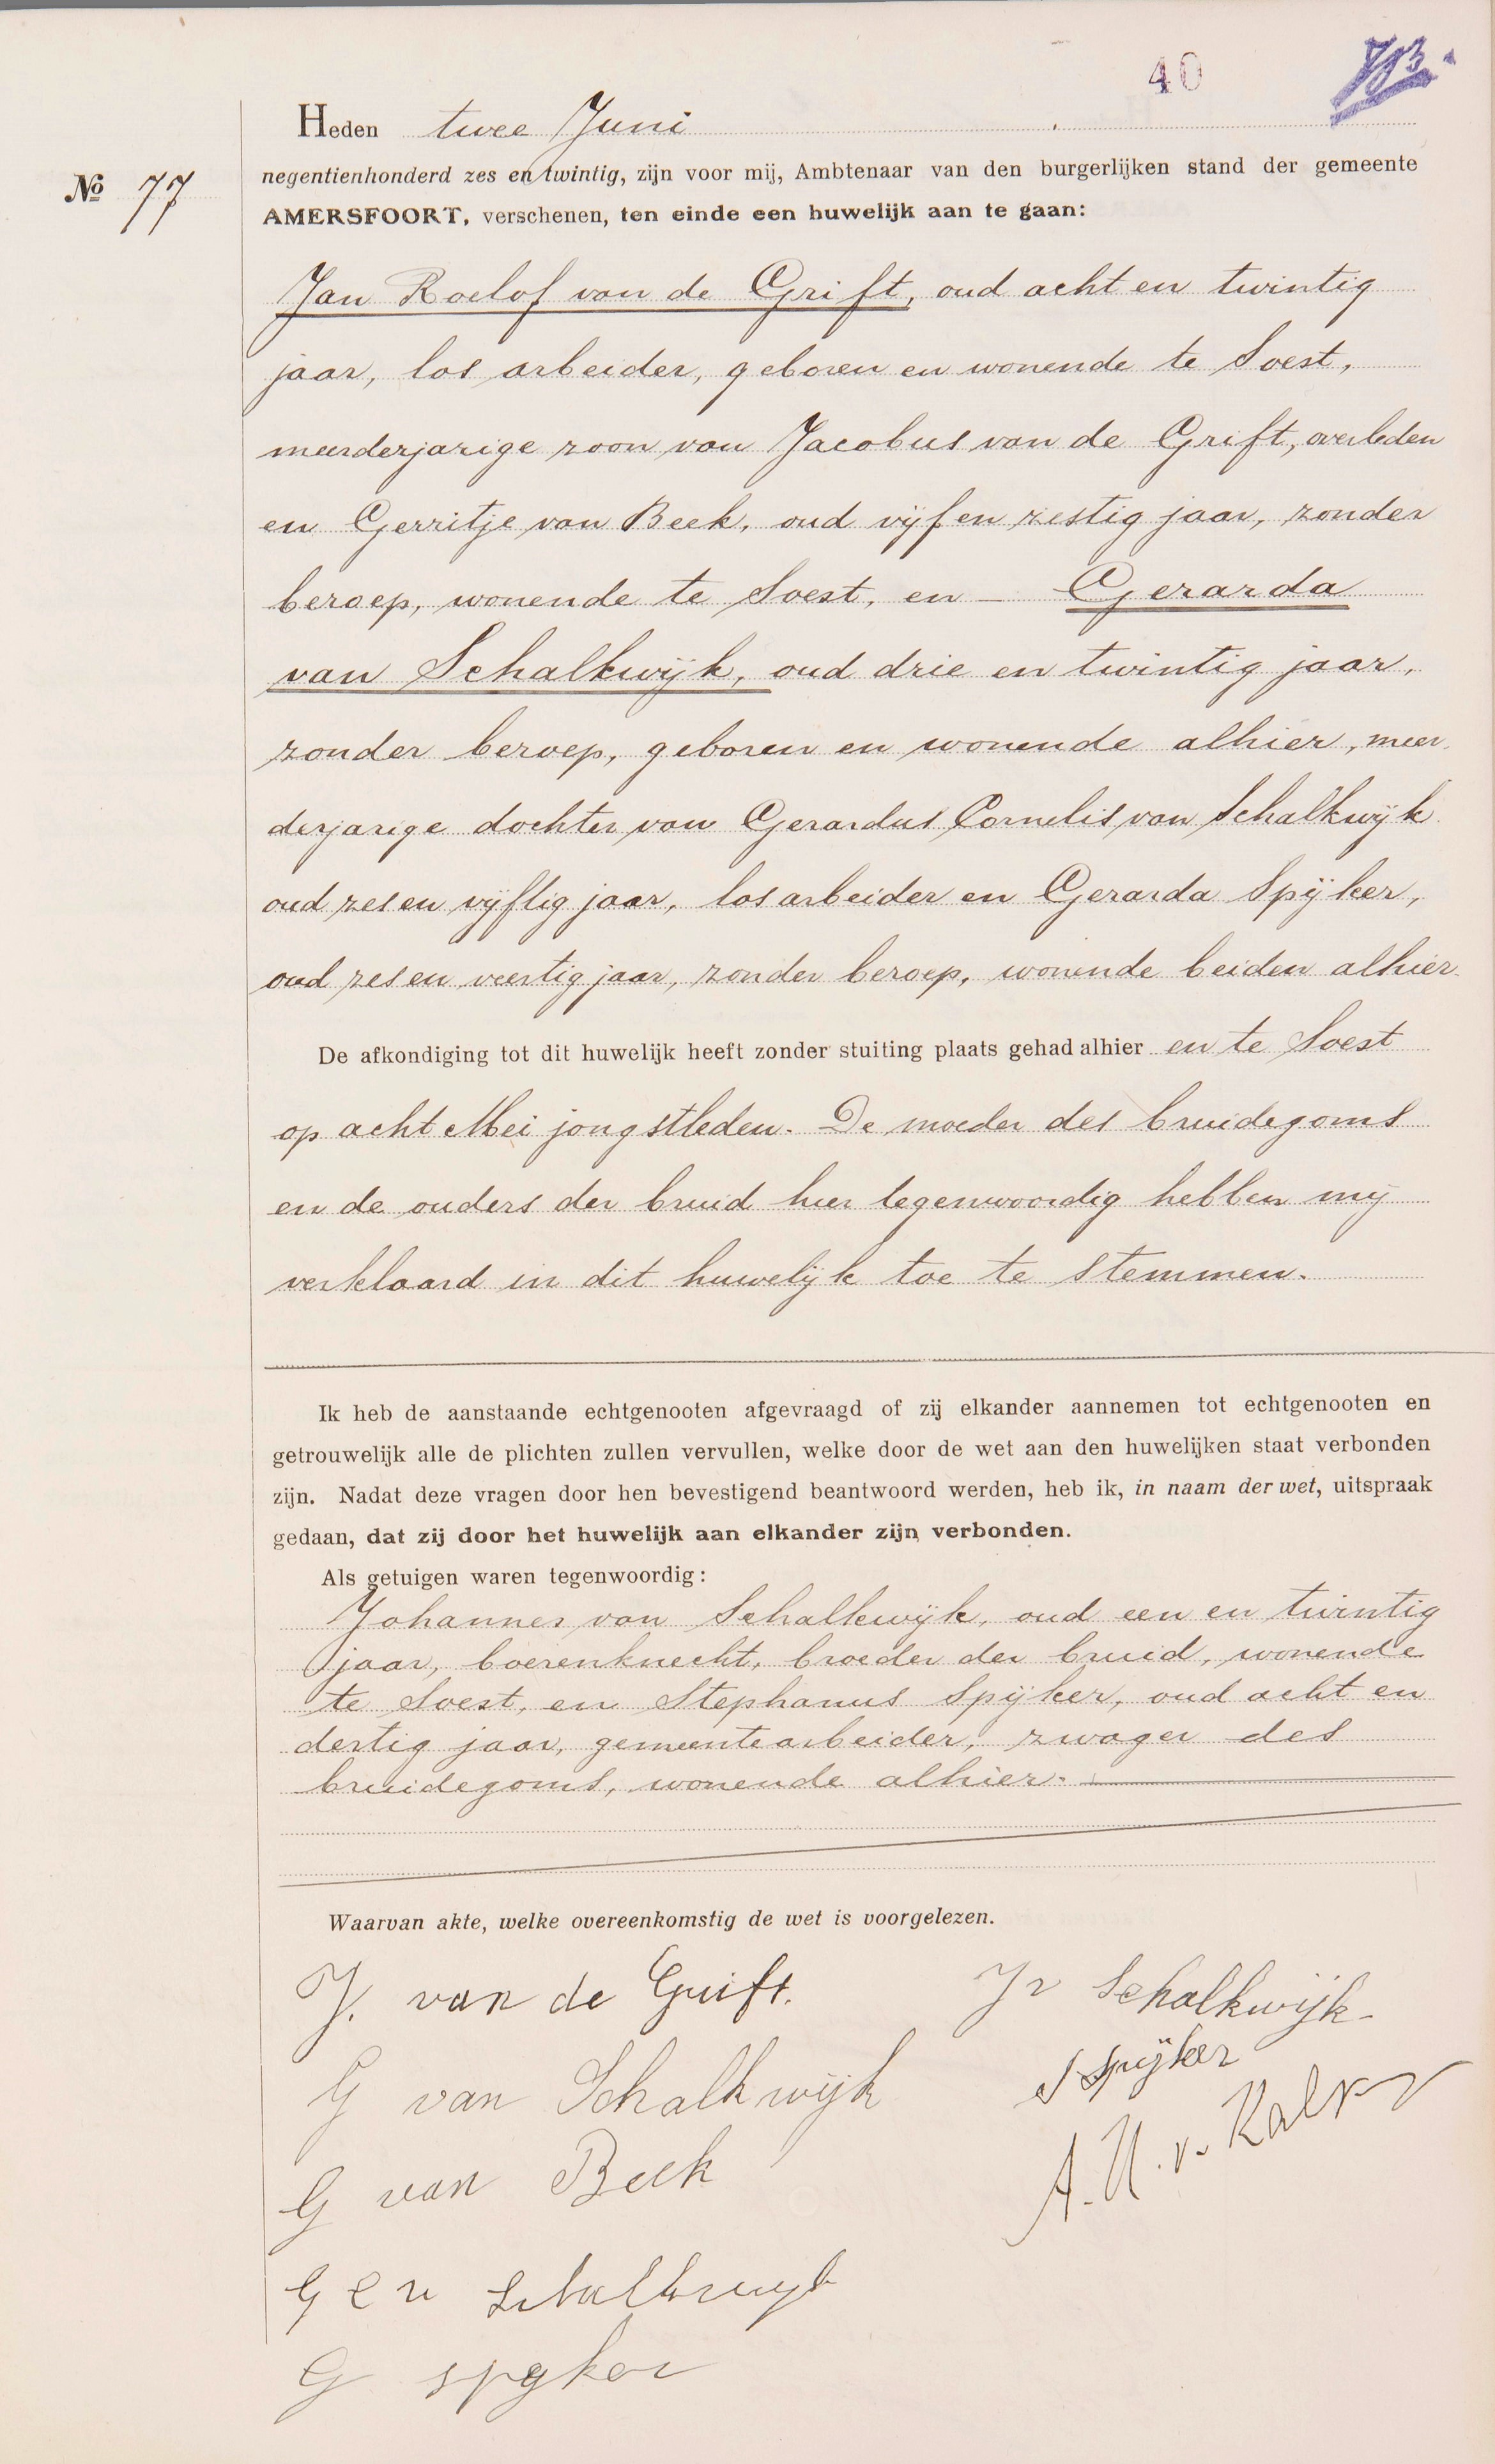 40
Heden twee Juni
negentienhonderd zes en twintig, zijn voor mij, Ambtenaar van den burgerlijken stand der gemeente
No 77
AMERSFOORT, verschenen, ten einde een huwelijk aan te gaan:
Jan Roelof van de Grift, oud acht en twintig
jaar, los arbeider, geboren en wonende te Soest,
meerderjarige zoon van Jacobus van de Grift, overleden
en Gerritje van Beek, oud vijf en zestig jaar, zonder
beroep, wonende te Soest, en — Gerarda
van Schalkwijk, oud drie en twintig jaar,
zonder beroep, geboren en wonende alhier, meer
derjarige dochter van Gerardus Cornelis van Schalkwijk
oud zes en vijftig jaar, los arbeider en Gerarda Spijker,
oud zes en veertig jaar, zonder beroep, wonende beiden alhier.
De afkondiging tot dit huwelijk heeft zonder stuiting plaats gehad alhier en te Soest
op acht Mei jongstleden. De moeder des bruidegoms
en de ouders der bruid hier tegenwoordig hebben mij
verklaard in dit huwelijk toe te stemmen.
Ik heb de aanstaande echtgenooten afgevraagd of zij elkander aannemen tot echtgenooten en
getrouwelijk alle de plichten zullen vervullen, welke door de wet aan den huwelijken staat verbonden
zijn. Nadat deze vragen door hen bevestigend beantwoord werden, heb ik, in naam der wet, uitspraak
gedaan, dat zij door het huwelijk aan elkander zijn verbonden.
Als getuigen waren tegenwoordig:
Johannes van Schalkwijk, oud een en twintig
jaar, boerenknecht, broeder der bruid, wonende
te Soest, en Stephanus Spijker, oud acht en
dertig jaar, gemeentearbeider, zwager des
bruidegoms, wonende alhier.
Waarvan akte, welke overeenkomstig de wet is voorgelezen.
J. van de Grift.
J v Schalkwijk
G van Schalkwijk
S Spijker
A. H. v. Kalk
G van Beek
G C v Schalkwijk
G spyker